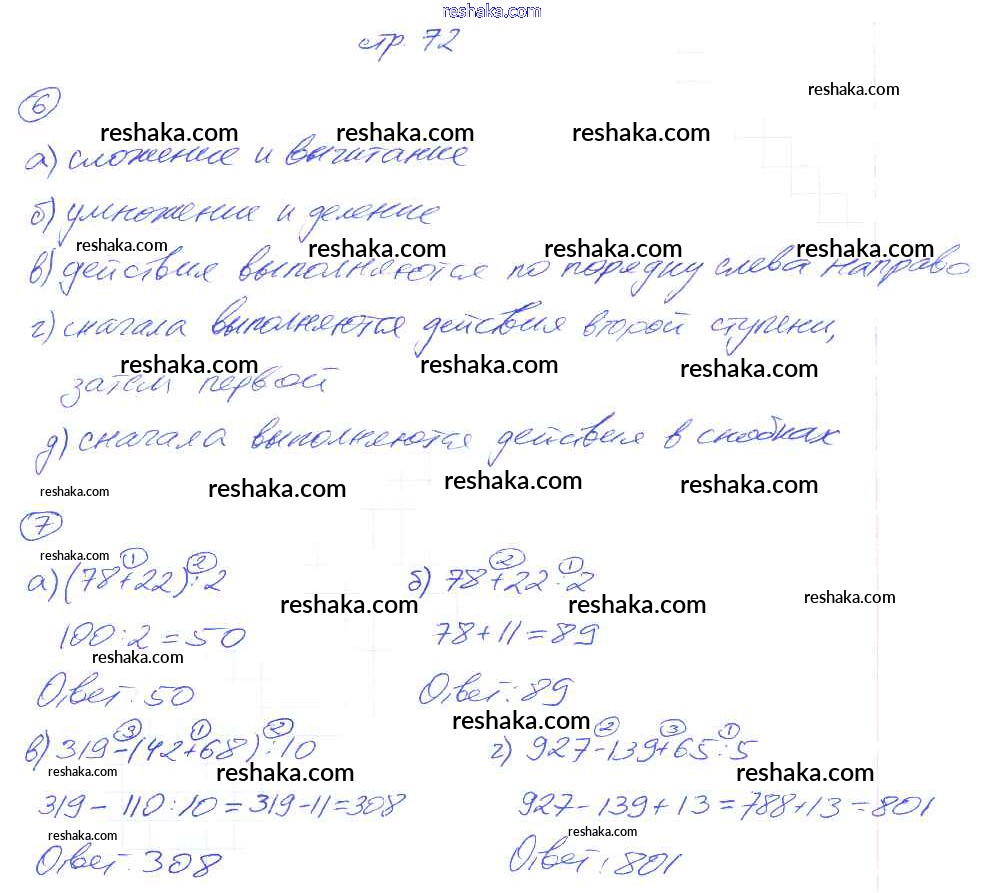 reshaka.com
стр. 72
reshaka.com
6
reshaka.com reshaka.com reshaka.com
а) сложение и вычитание
б) умножение и деление
reshaka.com reshaka.com reshaka.com reshaka.com
в) действия выполняются по порядку слева направо
г) сначала выполняются действия второй ступени,
reshaka.com reshaka.com reshaka.com
затем первой
д) сначала выполняются действия в скобках
reshaka.com reshaka.com reshaka.com reshaka.com
7
reshaka.com 1 2 2 1
а) (78+22):2 б) 78+22:2
reshaka.com reshaka.com reshaka.com
100:2=50 78+11=89
reshaka.com
Ответ: 50 Ответ: 89
reshaka.com
3 1 2 2 3 1
в) 319-(42+68):10 г) 927-139+65:5
reshaka.com reshaka.com reshaka.com
319-110:10=319-11=308 927-139+13=788+13=801
reshaka.com reshaka.com
Ответ: 308 Ответ: 801